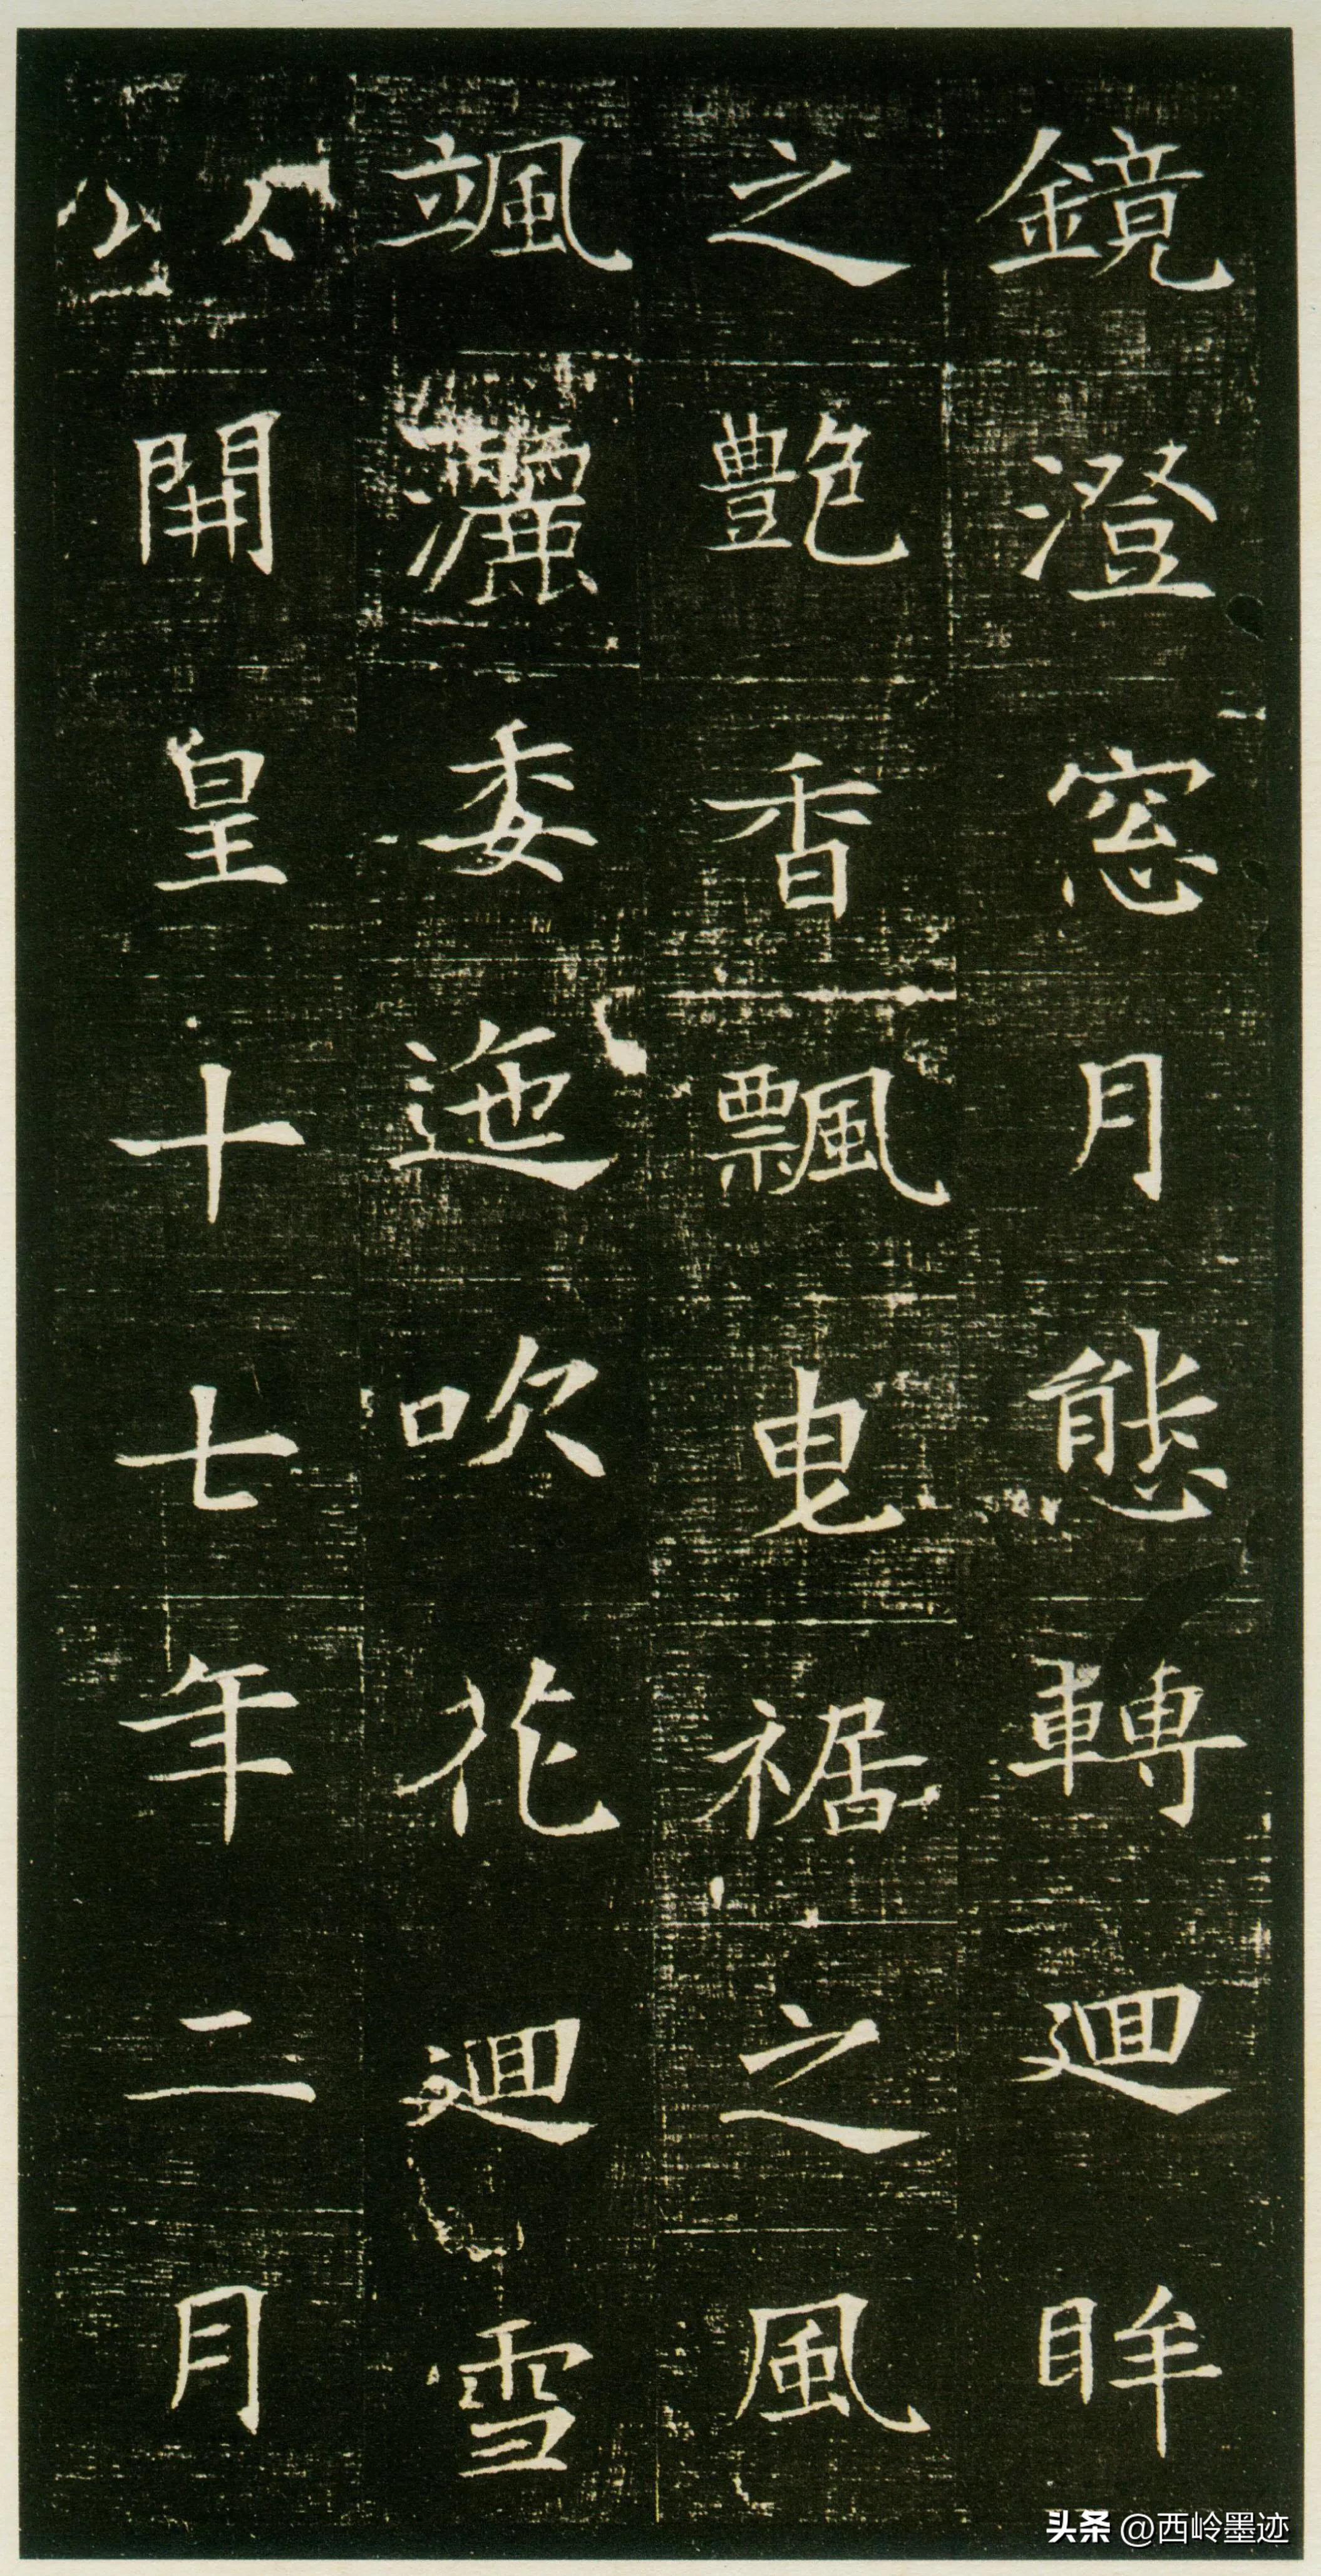 鏡澄窓月態轉迴眸
之艶香飄曳裾之風
颯灑委迤吹花迴雪
以開皇十七年二月
头条 @西岭墨迹